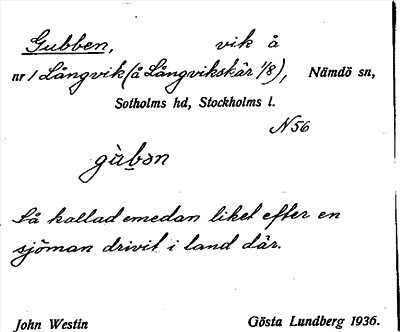 Gubben, vik å
nr 1 Långvik (å Långvikskär 1/8), Nämdö sn,
Sotholms hd, Stockholms l.
N 56
gùbən
Så kallad emedan liket efter en
sjöman drivit i land där.
John Westin Gösta Lundberg 1936.